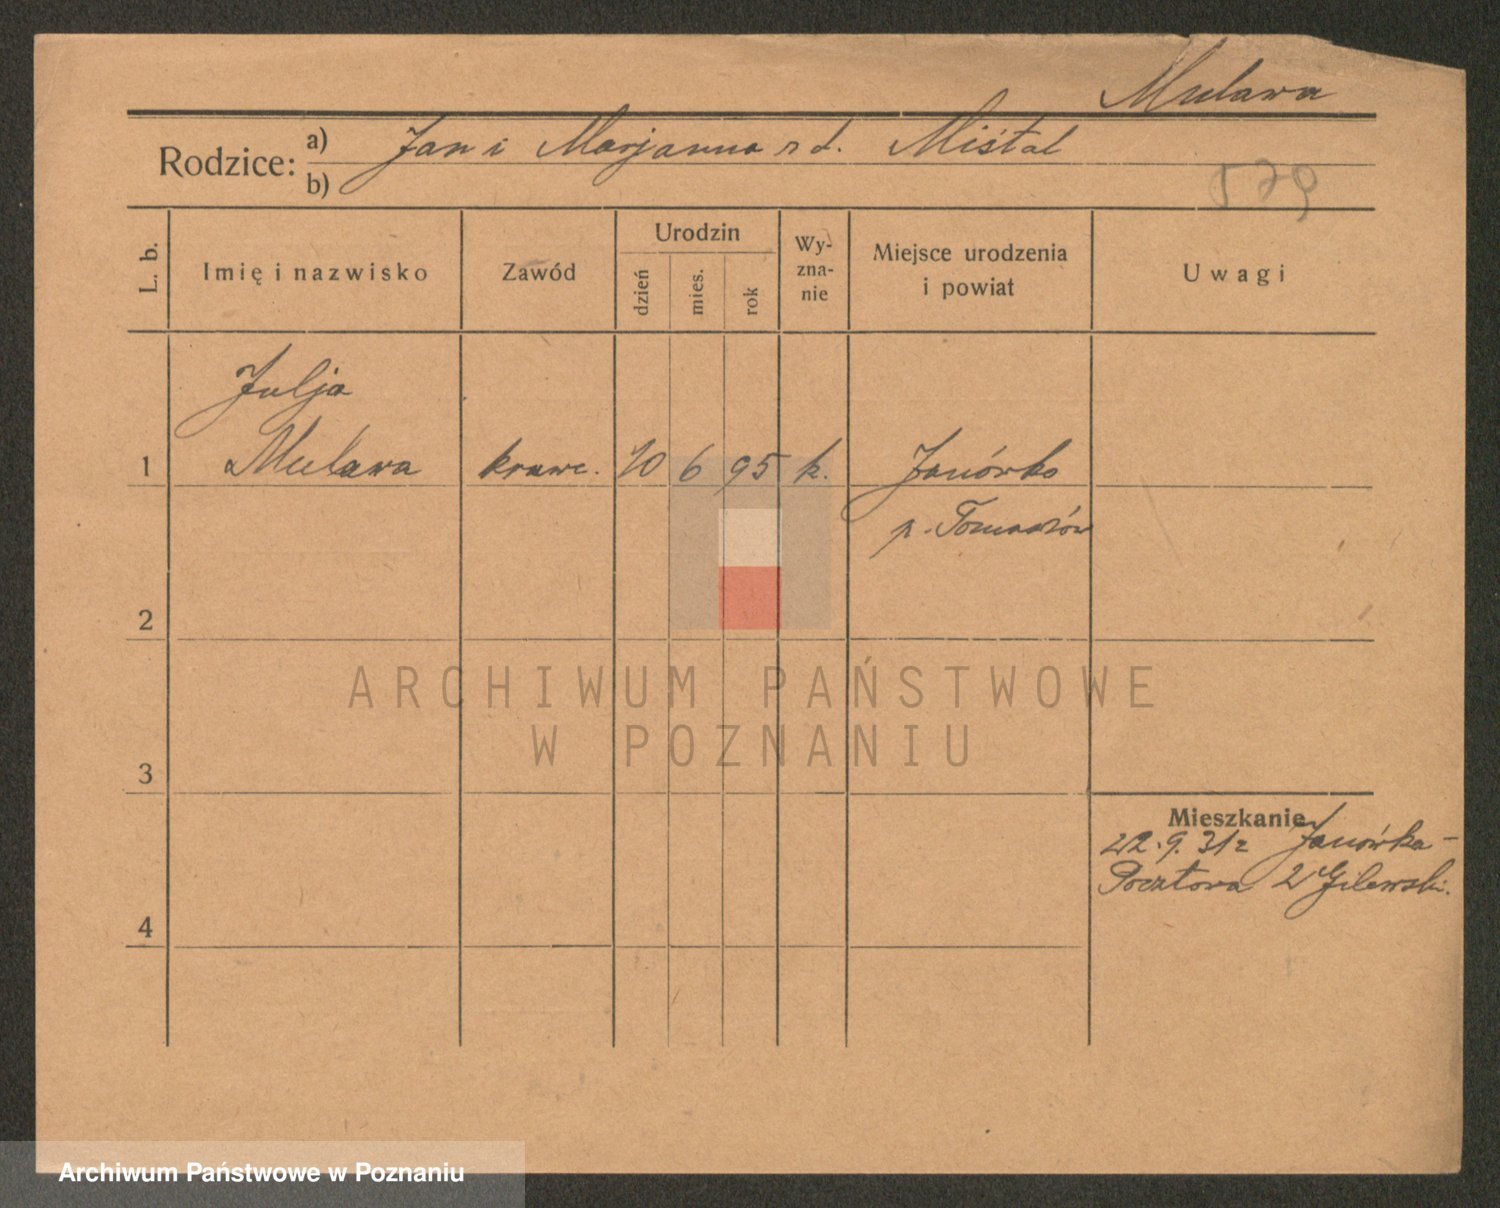 Mulawa
Rodzice: a) Jan i Marjanna z d. Miśtal
b)
579
L. b. Imię i nazwisko Zawód Urodzin dzień mies. rok Wyznanie Miejsce urodzenia i powiat Uwagi
Julja
1 Mulawa krawc. 10 6 95 k. Janówko
p. Tomaszów
2
ARCHIWUM PAŃSTWOWE
W POZNANIU
3
Mieszkanie
22.9.31 z Janówka -
Pocztowa 2 Gilewski.
4
Archiwum Państwowe w Poznaniu